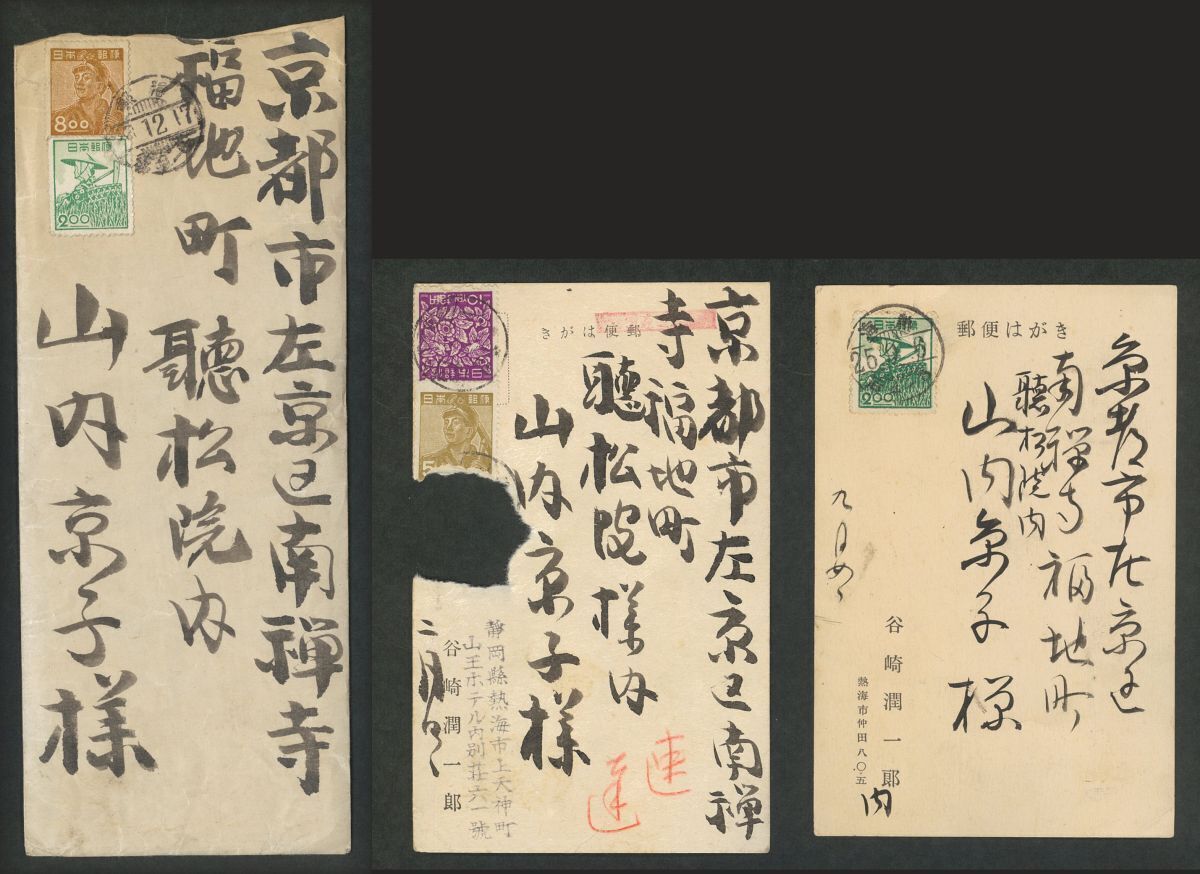 京都市左京区南禅寺
福地町
聽松院内
山内京子様
日本郵便
8.00
12.17
日本郵便
2.00
郵便はがき
京都市左京区南禅
寺福地町
聽松院様内
山内京子様
速達
日本郵便
静岡縣熱海市上天神町
山王ホテル内別荘六一號
谷崎潤一郎
二月
郵便はがき
京都市左京区
南禅寺福地町
聽松院内
山内京子様
日本郵便
2.00
25
6
九月
谷崎潤一郎
熱海市仲田八〇五
内